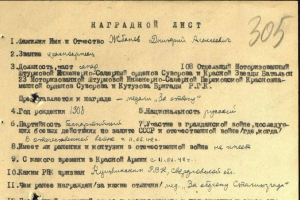 305
НАГРАДНОЙ ЛИСТ
1. Фамилия Имя и Отчество Дмитрий Алексеевич
2. Звание
3. Должность, часть сапер 10й Отдельный Моторизованный
Штурмовой Инженерно-Саперный орденов Суворова и Красной Звезды Батальон
23 Моторизованной Штурмовой Инженерно-Саперной Краснознаменной
орденов Суворова и Кутузова Бригады Р.Г.К.
Представляется к награде - медали "За отвагу"
4. Год рождения 5. Национальность русский
6. Партийность Беспартийный 7. Участие в гражданской войне, последующих
боевых действиях по защите СССР и отечественной войне (где, когда)
В отечественной войне с
8. Имеет ли ранения и контузии в отечественной войне не имеет
9. С какого времени в Красной Армии с
10. Каким РВК призван РВК, Свердловской обл.
11. Чем ранее награжден (за какие отличия) мед. "За оборону Сталинграда"